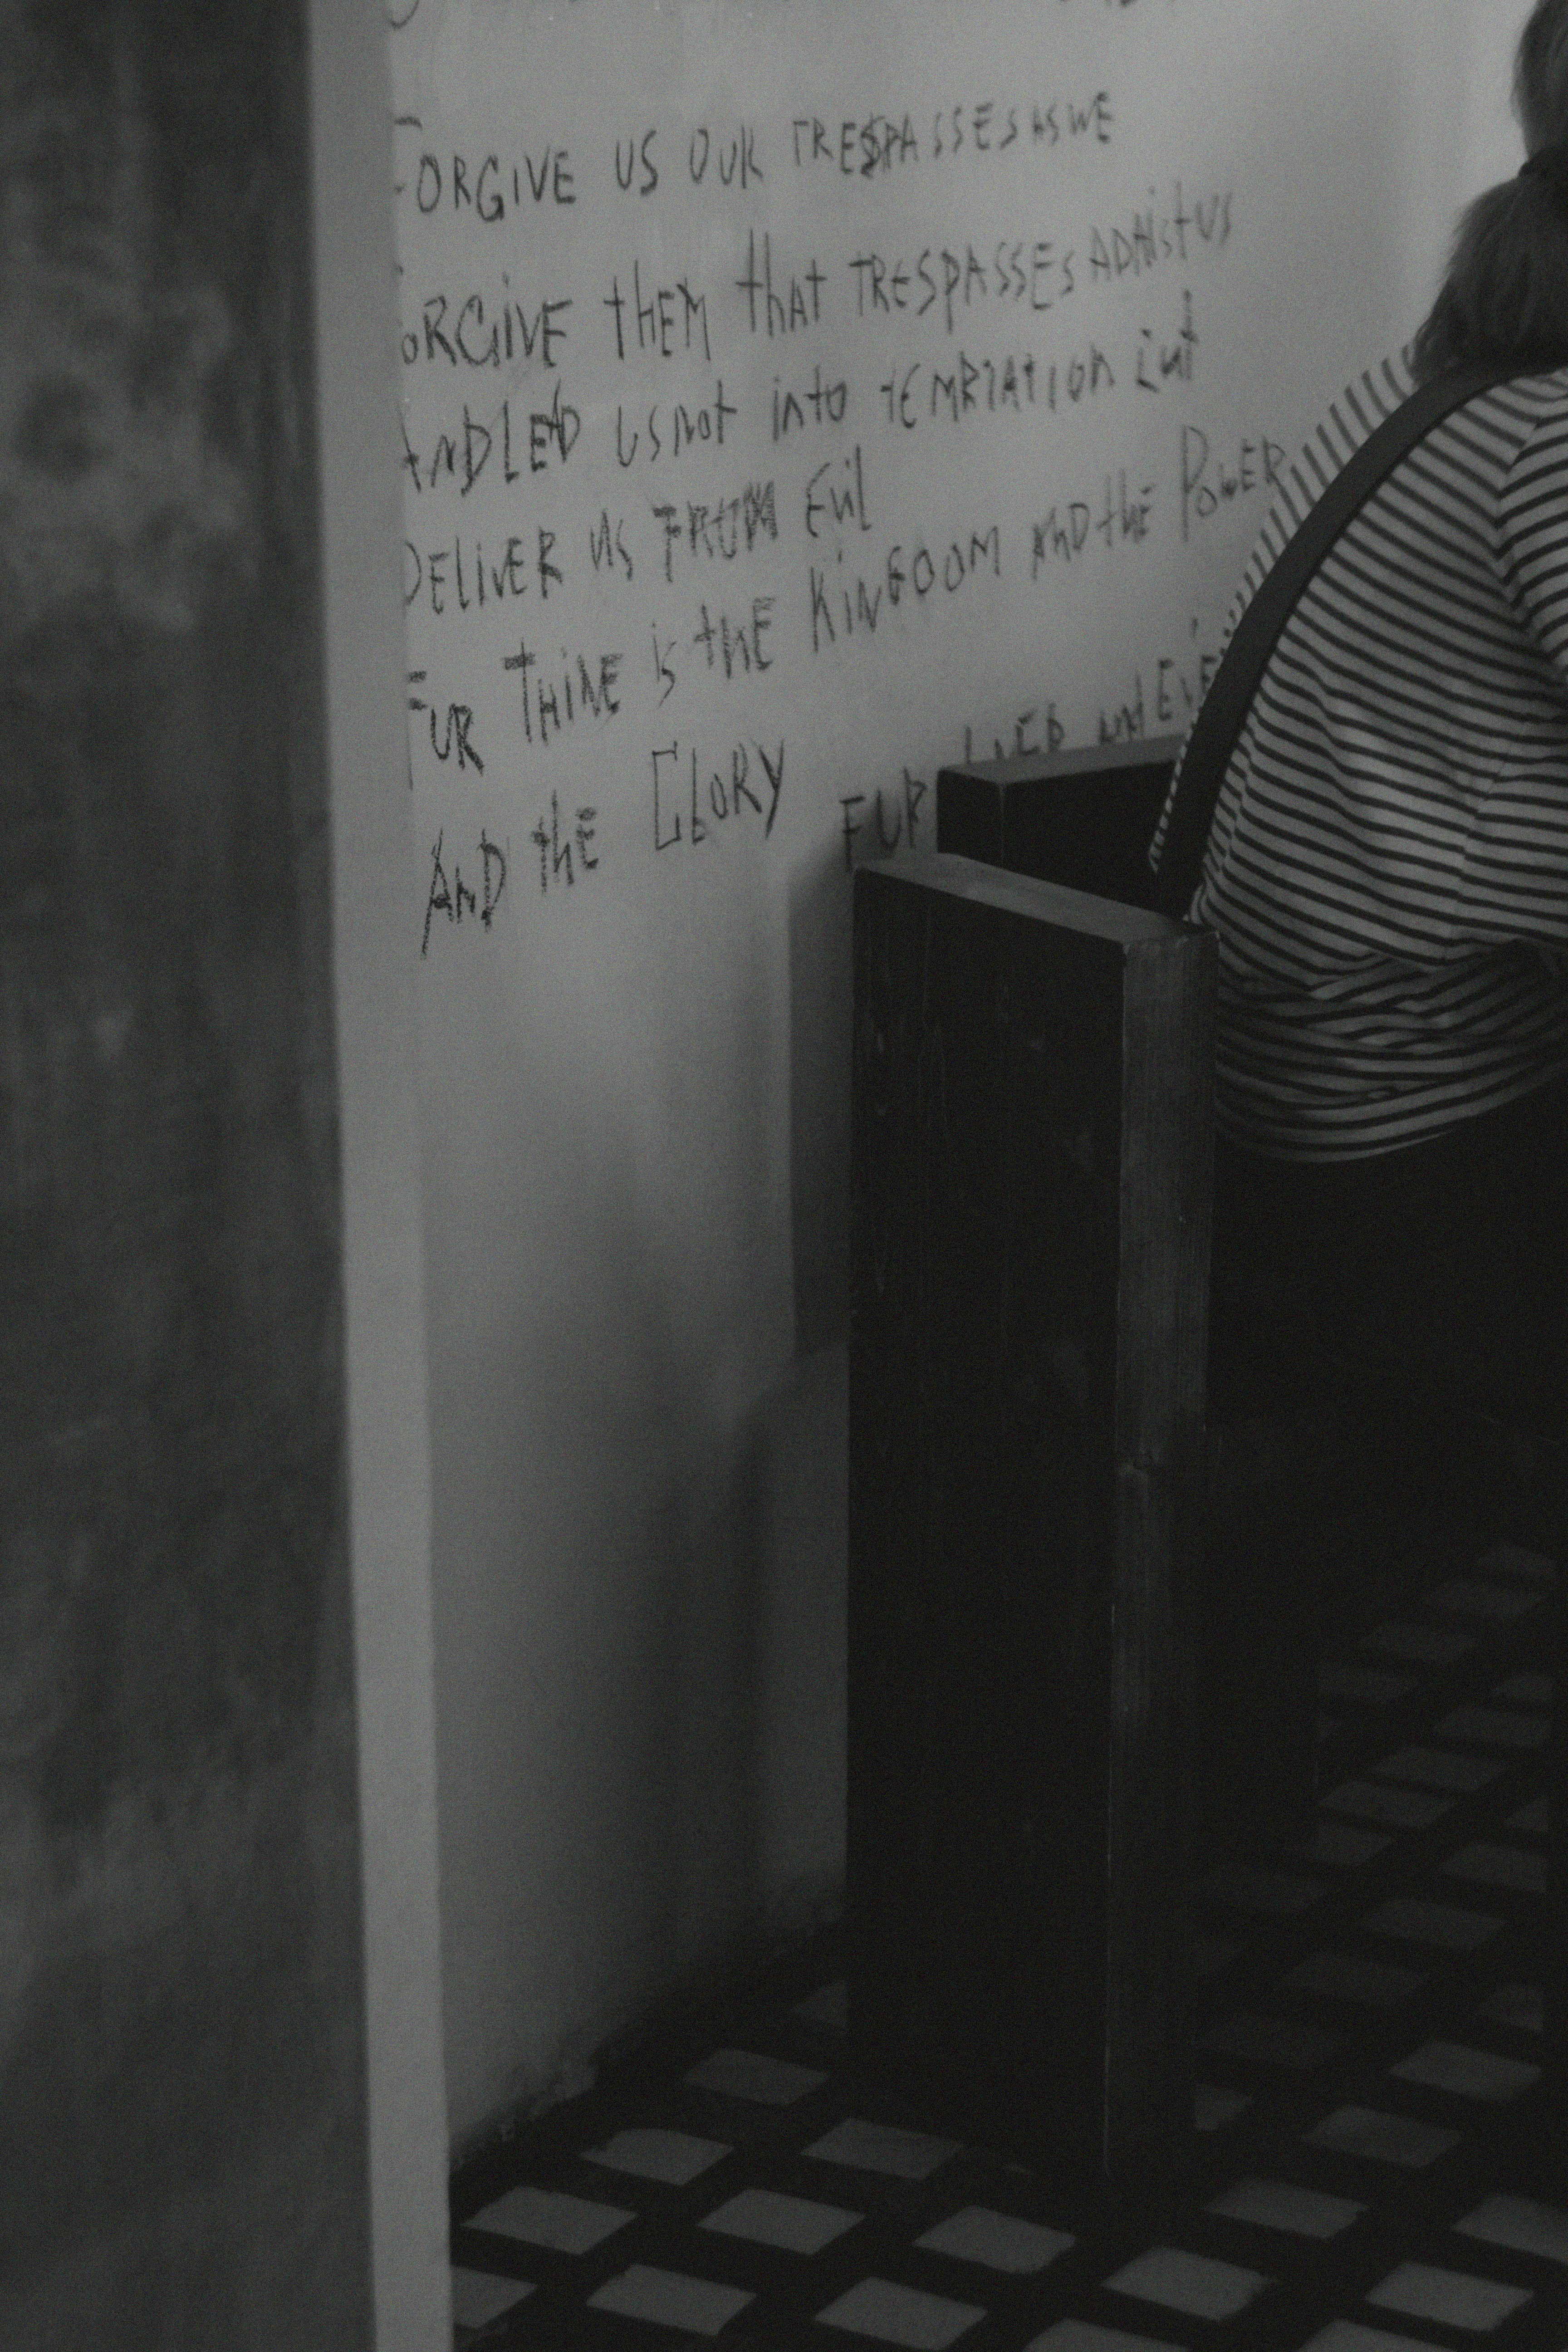 FORGIVE US OUR TRESPASSES AS WE
FORGIVE thEM that TRESPASSES ADAistUS
ANDLEAD us not into tEMPTATION but
DELIVER us FROM Evil
FUR ThiNE is thE KiNGDOM AND thE PoWER
AND thE GlORY FUR EVER